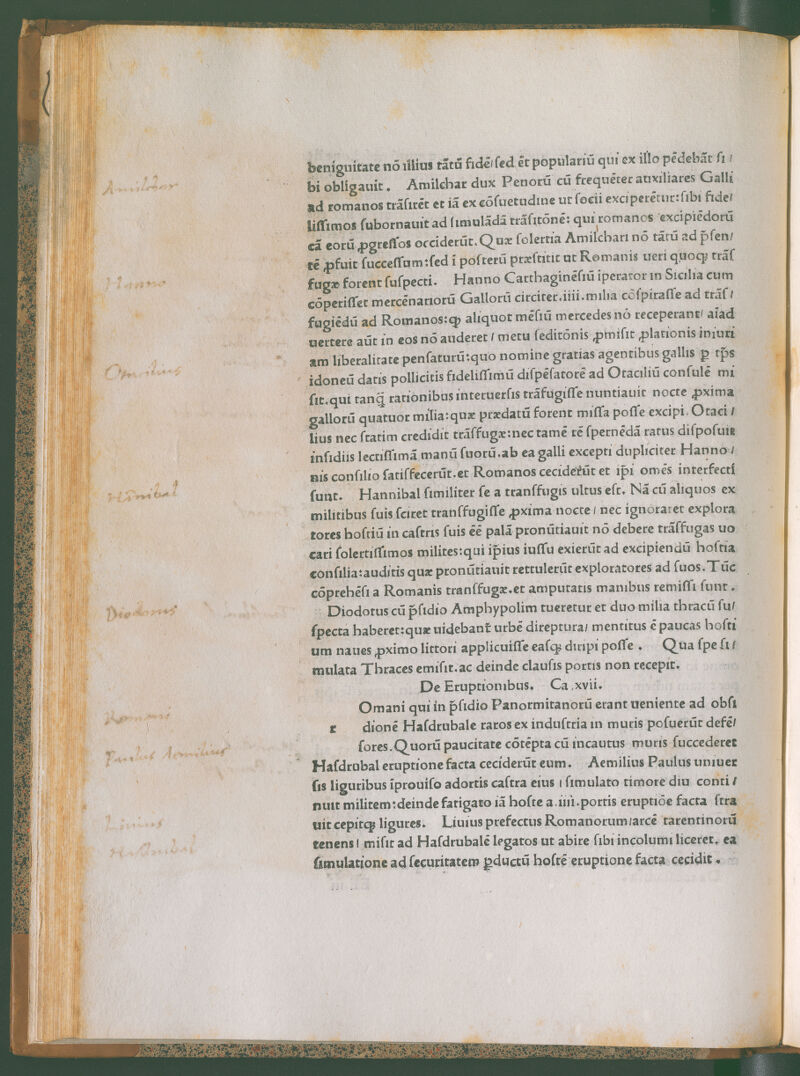 benignitate nō illius tātū fidē/ſed ēt populariū qui ex illo pēdebāt ſi /
bi obligauit . Amilchar dux Penorū cū frequēter auxiliares Galli
ad romanos trāſirēt et iā ex cōſuetudine ut ſocii exciperētur:ſibi fide/
liſſimos ſubornauit ad ſimulādā trāſitōnē: qui romanos excipiēdorū
cā eorū ꝓgreſſos occiderūt.Quæ ſolertia Amilchari nō tātū ad p̄ſen/
tē ꝓfuit ſucceſſum:ſed ī poſterū præſtitit ut Romanis ueri quoqꝫ trāſ
fugæ forent ſuſpecti. Hanno Carthaginēſiū iperator in Sicilia cum
cōperiſſet mercēnariorū Gallorū circiter.iiii.milia cōſpiraſſe ad trāſ /
fugiēdū ad Romanos:ꝙ aliquot mēſiū mercedes nō receperant/ aīad
uertere aūt in eos nō auderet / metu ſeditōnis ꝓmiſit ꝓlationis iniuri
am liberalitate penſaturū:quo nomine gratias agentibus gallis ꝑ tp̄s
idoneū datis pollicitis fideliſſimū diſpēſatorē ad Otaciliū conſulē mi
ſit.qui tanq̄ rationibus interuerſis trāſugiſſe nuntiauit nocte ꝓxima
gallorū quatuor milia:quæ prædatū forent miſſa poſſe excipi. Otaci /
lius nec ſtatim credidit trāſſugæ:nec tamē rē ſpernēdā ratus diſpoſuit
inſidiis lectiſſimā manū ſuorū.ab ea galli excepti dupliciter Hanno /
nis conſilio ſatiſfecerūt.et Romanos ceciderūt et ip̄i omēs interfecti
ſunt. Hannibal ſimiliter ſe a tranſſugis ultus eſt. Nā cū aliquos ex
militibus ſuis ſciret tranſſugiſſe ꝓxima nocte / nec ignoraret explora
tores hoſtiū in caſtris ſuis ēē palā pronūtiauit nō debere trāſſugas uo
cari ſolertiſſimos milites:qui ip̄ius iuſſu exierūt ad excipiendū hoſtia
conſilia:auditis quæ pronūtiauit rettulerūt exploratores ad ſuos.Tūc
cōprehēſi a Romanis tranſſugæ.et amputatis manibus remiſſi ſunt .
Diodotus cū p̄ſidio Amphypolim tueretur et duo milia thracū ſu/
ſpecta haberet:quæ uidebant̄ urbē direptura/ mentitus ē paucas hoſti
um naues ꝓximo littori applicuiſſe eaſqꝫ diripi poſſe . Qua ſpe ſti/
mulata Thraces emiſit.ac deinde clauſis portis non recepit.
De Eruptionibus. Ca.xvii.
Omani qui in p̄ſidio Panormitanorū erant ueniente ad obſi
r dionē Haſdrubale raros ex induſtria in muris poſuerūt defē/
ſores.Quorū paucitate cōtēpta cū incautus muris ſuccederet
Haſdrubal eruptione facta ceciderūt eum. Aemilius Paulus uniuer
ſis liguribus īprouiſo adortis caſtra eius / ſimulato timore diu conti /
nuit militem:deinde fatigato iā hoſte a.iiii.portis eruptiōe facta ſtra
uit cepitqꝫ ligures. Liuius prefectus Romanorum/arcē tarentinorū
tenens/ miſit ad Haſdrubalē legatos ut abire ſibi incolumi liceret. ea
ſimulatione ad ſecuritatem ꝑductū hoſtē eruptione facta cecidit .
Amilcar
Hanno
Hānibal
Diodorus
Romani
Paulus Aemilius
Liuius
Hasdrubal